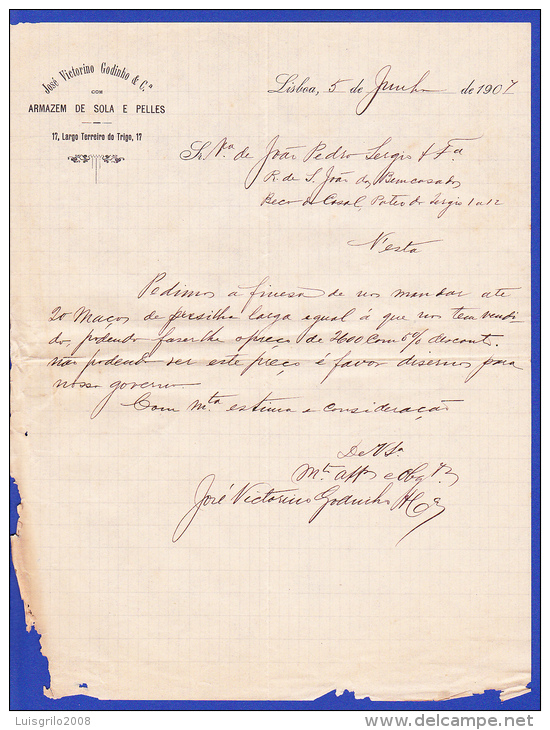 José Victorino Godinho & C.ª
COM
ARMAZEM DE SOLA E PELLES
17, Largo Terreiro do Trigo, 17
Lisboa, 5 de Junho de 1907
Sr. Vª de João Pedro Sergio & Fª
R. de S. João dos Bemcasados
Beco do Casal, Pateo do Sergio 1 a 12
N'esta
Pedimos a finesa de nos mandar até
20 Maços de presilha larga egual á que nos tem vendi
do, podendo faserlhe o preço de 2600 com 6% descont.
não podendo ser este preço é favor diser nos para
nosso governo
Com mta estima e consideração
De V. Sª
Mto Attos e Obgdos
José Victorino Godinho & Cª
Luisgrilo2008
www.delcampe.net